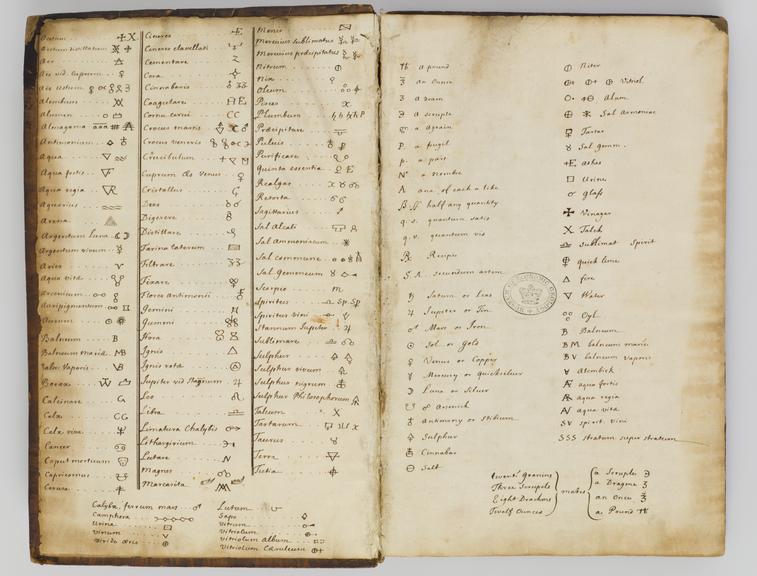 Acetum
Acetum distillatum
Aer
Aes vid. Cuprum
Aes ustum
Alembicus
Alumen
Amalgama
Antimonium
Aqua
Aqua fortis
Aqua regia
Aquarius
Arena
Argentum Luna
Argentum vivum
Aries
Aqua vitæ
Arsenicum
Auripigmentum
Aurum
Balneum B
Balneum mariæ MB
Baln: Vaporis VB
Borax
Calcinare
Calx
Calx viva
Cancer
Caput mortuum
Capricornus
Cerussa
Cineres
Cineres clavellati
Cementare
Cera
Cinnabaris
Coagulare
Cornu cervi CC
Crocus martis
Crocus veneris
Crucibulum
Cuprum Æs Venus
Cristallus
Dies
Digerere
Distillare
Farina laterum
Filtrare
Fixare
Flores Antimonii
Gemini
Gummi
Hora
Ignis
Ignis rota
Jupiter vid Stagnum
Leo
Libra
Limatura Chalybis
Lithargirium
Lutare
Magnes
Marcasita
Mensis
Mercurius sublimatus
Mercurius præcipitatus
Nitrum
Nox
Oleum
Pisces
Plumbum
Præcipitare
Pulvis
Purificare
Quinta essentia
Realgar
Retorta
Sagittarius
Sal Alcali
Sal Ammoniacum
Sal commune
Sal Gemmeum
Scorpio
Spiritus Sp. Sp
Spiritus vini
Stannum Jupiter
Sublimare
Sulphur
Sulphur vivum
Sulphur nigrum
Sulphur Philosophorum
Talcum X
Tartarum
Taurus
Terra
Tutia
Calybs, ferrum mars
Camphora
Urina
Vinum
Viride æris
Lutum
Sapo
Vitrum
Vitriolum
Vitriolum album
Vitriolum Cæruleum
a pound
an Ounce
a dram
a scruple
a Grain
P. a pugil
p. a part
N° a number
A ana, of each a like
ß ss half any quantity
q. s. quantum satis
q. v. quantum vis
℞ Recipe
S A secundum artem
♄ Saturn or Lead
♃ Jupiter or Tin
♂ Mars or Iron
☉ Sol or Gold
♀ Venus or Copper
☿ Mercury or quicksilver
☽ Luna or Silver
Arsenick
♁ Antimony or Stibium
Sulphur
Cinnabar
Salt
Niter
Vitriol
Alum
Sal Armoniac
Tartar
Sal gemm.
Ashes
Urine
Glass
Vinager
X Talck
Sublimat Spirit
quick lime
△ fire
▽ Water
Oyl
B Balneum
BM balneum mariæ
BV balneum vaporis
Alembick
aqua fortis
aqua regia
aqua vitæ
SV spirit vini
SSS stratum super stratum
twenty Grains
Three Scruples
Eight Drachms
Twelf Ounces
makes
a Scruple ℈
a Dragme ʒ
an Once
a Pound